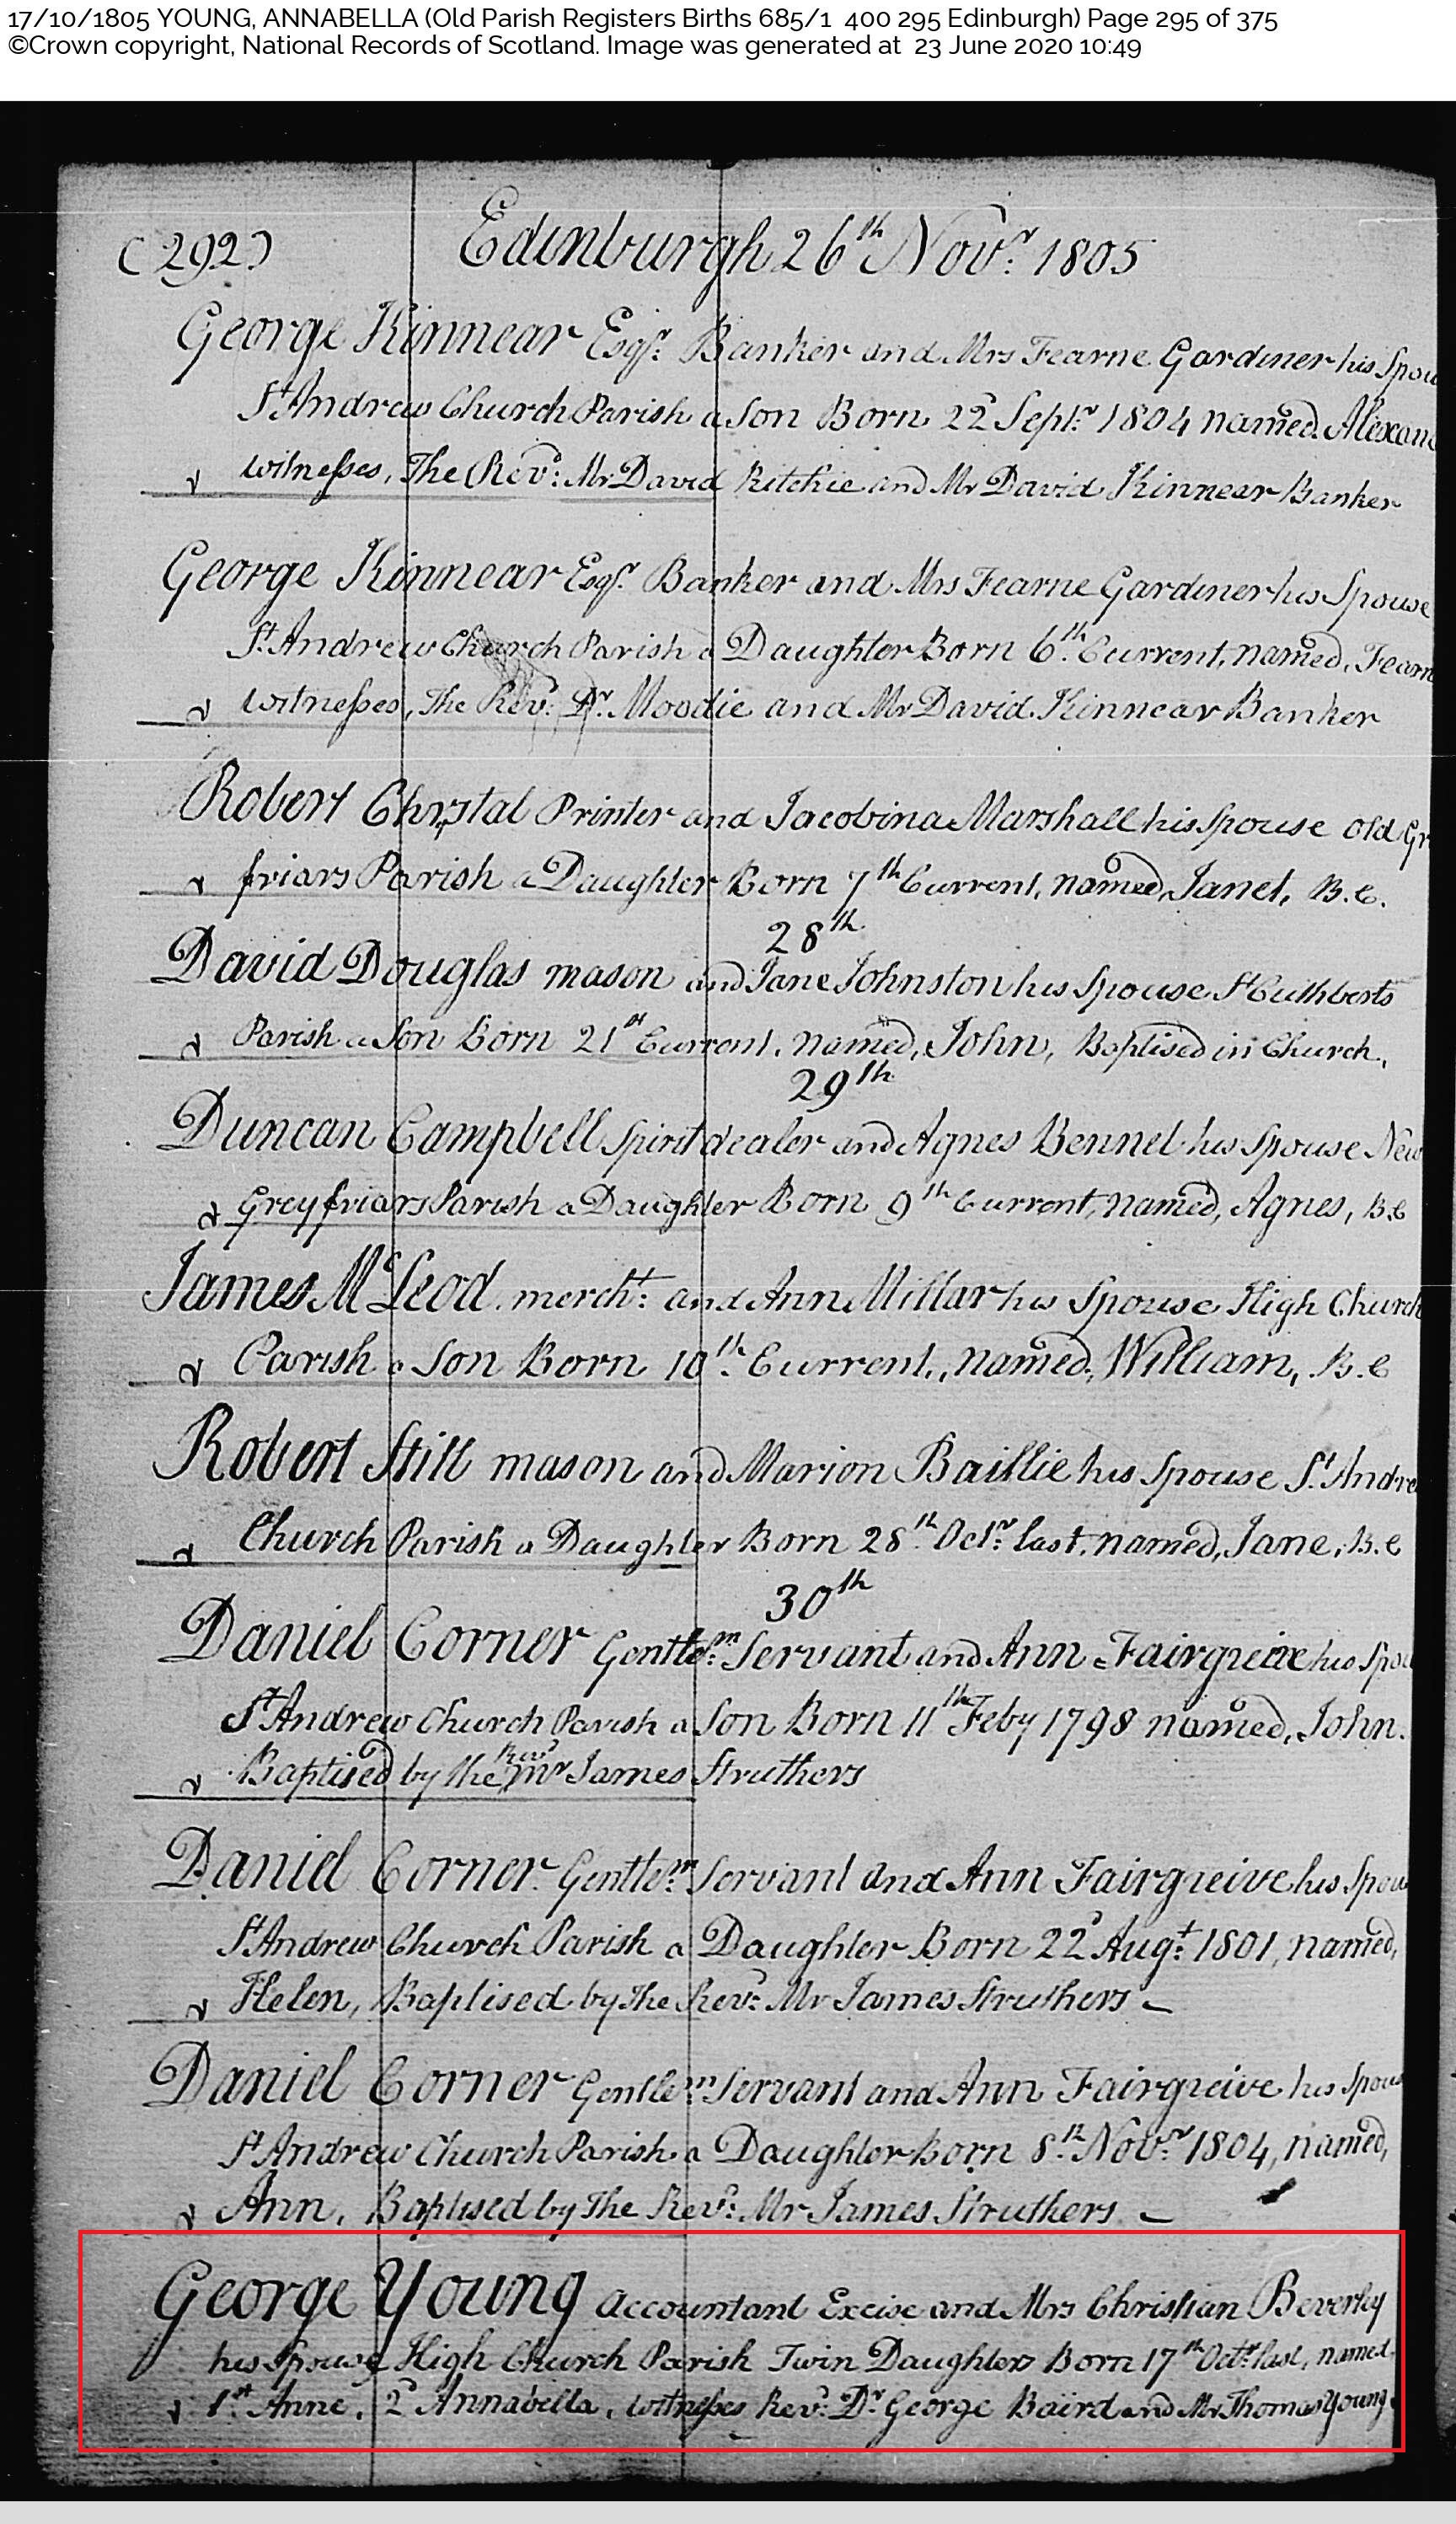 17/10/1805 YOUNG, ANNABELLA (Old Parish Registers Births 685/1 400 295 Edinburgh) Page 295 of 375
©Crown copyright, National Records of Scotland. Image was generated at 23 June 2020 10:49
(292) Edinburgh 26th Novr. 1805
George Kinnear Esqr. Banker and Mrs Fearne Gardiner his Spou
St Andrew Church Parish a Son Born 22d Septr. 1804 named Alexan
witnesses, The Revd: Mr David Ritchie and Mr David Kinnear Banker
George Kinnear Esqr. Banker and Mrs Fearne Gardiner his Spouse
St. Andrew Church Parish a Daughter Born 6th. Current, named, Fearn
witnesses, The Revd. Dr. Moodie and Mr David Kinnear Banker
Robert Chrystal Printer and Jacobina Marshall his Spouse Old Gr
friars Parish a Daughter Born 7th Current, named, Janet, B.C.
28th
David Douglas mason and Jane Johnston his Spouse St Cuthberts
Parish a Son Born 21st Current, named, John, Baptised in Church.
29th
Duncan Campbell Spirit dealer and Agnes Bennet his Spouse New
Greyfriars Parish a Daughter Born 9th Current, named, Agnes, B.C
James McLeod mercht: and Ann Millar his Spouse High Church
Parish a Son Born 10th. Current, named, William, B.C
Robert Still mason and Marion Baillie his Spouse St. Andre
Church Parish a Daughter Born 28th. Octr: last, named, Jane, B.C
30th
Daniel Corner Gentlemn: Servant and Ann Fairgreive his Spou
St Andrew Church Parish a Son Born 11th Feby 1798 named, John.
Baptised by the Revd Mr James Struthers
Daniel Corner Gentlemn: Servant and Ann Fairgreive his Spou
St Andrew Church Parish a Daughter Born 22d Augt: 1801, named,
Helen, Baptised by The Revd: Mr James Struthers
Daniel Corner Gentlemn: Servant and Ann Fairgreive his Spous
St Andrew Church Parish a Daughter Born 8th. Novr 1804, named,
Ann, Baptised by The Revd: Mr James Struthers
George Young Accountant Excise and Mrs Christian Beverley
his Spouse High Church Parish Twin Daughters Born 17th Octr. last, named,
1st. Anne, 2d Annabella, witnesses Revd: Dr George Baird and Mr Thomas Young